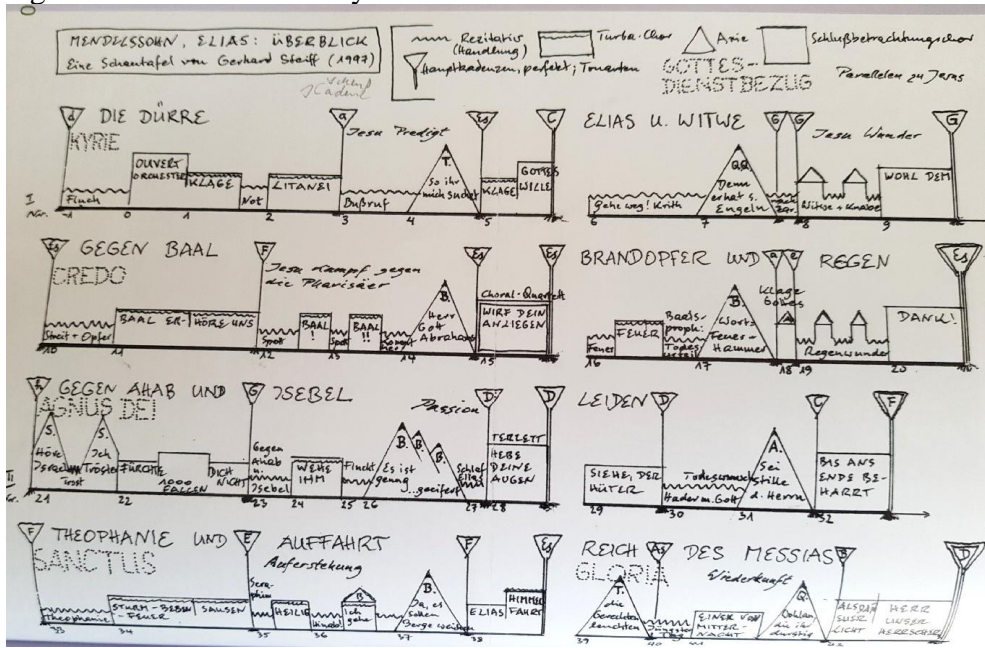 MENDELSSOHN, ELIAS: ÜBERBLICK
Eine Schautafel von Gerhard Steiff (1997)
Rezitativ (Handlung)
Turba-Chor
Arie
Schlußbetrachtungschor
Hauptkadenzen, perfekt; Tonarten
GOTTES-
DIENSTBEZUG
Parallelen zu Jesus
d DIE DÜRRE a Jesu Predigt Es C
KYRIE
OUVERT.
ORCHESTER
KLAGE
LITANEI
T.
So ihr
mich suchet
KLAGE
GOTTES
WILLE
Fluch
Not
Bußruf
I
Nr.
-1 0 1 2 3 4 5
ELIAS U. WITWE G G Jesu Wunder G
Gehe weg! Krith
QQ.
Denn
er hat s.
Engeln
nach
Zar.
Witwe + Knabe
WOHL DEM
6 7 8 9
Es GEGEN BAAL F Jesu Kampf gegen
die Pharisäer Es Es
CREDO
Streit + Opfer
BAAL ER-
HÖRE UNS
Spott
BAAL
!
Spott
BAAL
!!
B.
Herr
Gott
Abrahams
Choral-Quartett
WIRF DEIN
ANLIEGEN
10 11 12 13 14 15
BRANDOPFER UND a e REGEN Es
Klage
Gottes
Feuer
FEUER
Baals-
proph:
Todes
urteil
B.
Worts
Feuer +
Hammer
A
Regenwunder
DANK!
16 17 18 19 20
h GEGEN AHAB UND G ISEBEL Passion D D
AGNUS DEI
S.
Höre
Israel
Trost
S.
Ich
Tröster
FÜRCHTE
1000
FALLEN
DICH
NICHT
Gegen
Ahab
u.
Isebel
WEHE
IHM
Flucht
B. B. B.
Es ist
genug
...geeifert
Schlaf
Elias
TERZETT
HEBE
DEINE
AUGEN
II
Nr.
21 22 23 24 25 26 27 28
LEIDEN D C F
SIEHE, DER
HÜTER
Todeswunsch
Hader m. Gott
A.
Sei
stille
d. Herrn
BIS ANS
ENDE BE-
HARRT
29 30 31 32
F THEOPHANIE UND E AUFFAHRT F Es
Auferstehung
SANCTUS
Theophanie
STURM-BEBEN
-FEUER
SAUSEN
Sera-
phim
HEILIG
B
Ich
gehe
B.
Ja, es
sollen
Berge weichen
ELIAS
HIMMEL
FAHRT
33 34 35 36 37 38
REICH As DES MESSIAS B D
GLORIA Wiederkunft
T.
die
Gerechten
leuchten
Jüngster
Tag
EINER VON
MITTER-
NACHT
Q.
Wohlan
die ihr
durstig
ALSDANN
EUER
LICHT
HERR
UNSER
HERRSCHER
39 40 41 42